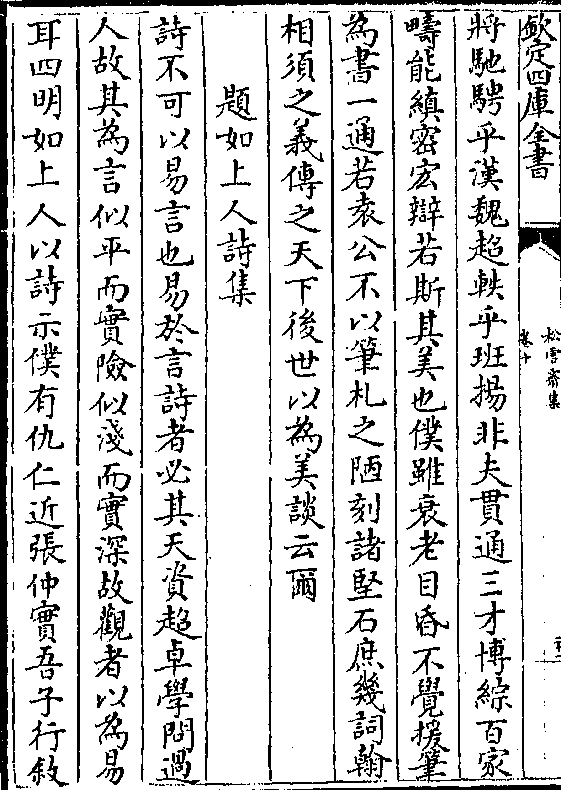 欽定四庫全書
松雪齋集
卷十
將馳騁乎漢魏超軼乎班揚非夫貫通三才博綜百家
疇能縝密宏辯若斯其美也僕雖衰老目昏不覺援筆
為書一通若袁公不以筆札之陋刻諸堅石庶幾詞翰
相須之義傳之天下後世以為美談云爾
題如上人詩集
詩不可以易言也易於言詩者必其天資超卓學問過
人故其為言似平而實險似淺而實深故觀者以為易
耳四明如上人以詩示僕有仇仁近張仲實吾子行敘